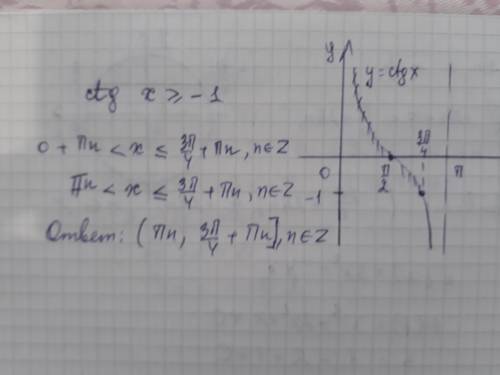 ctg x ≥ -1
0 + πn < x ≤ 3π/4 + πn, n∈Z
πn < x ≤ 3π/4 + πn, n∈Z
Ответ: (πn, 3π/4 + πn], n∈Z
y
y = ctgx
3π/4
0
π/2
π
-1